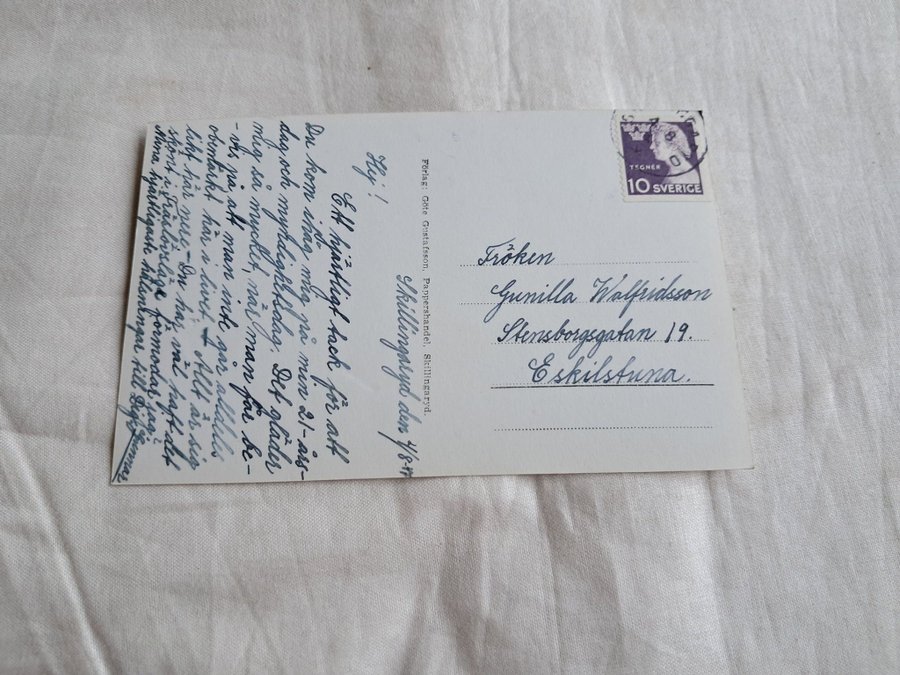 Skillingaryd den 4/8-47
Hej!
Ett hjärtligt tack för att
Du kom ihåg mig på min 21-års-
dag och myndighetsdag. Det gläder
mig så mycket, när man får be-
vis på att man inte går alldeles
obemärkt här i livet. Allt är sig
likt här nere - Du har väl haft det
skönt i
Mina hjärtligaste hälsningar till Dig
Förlag: Göte Gustafsson, Pappershandel, Skillingaryd.
TEGNÉR
10 SVERIGE
Fröken
Gunilla Walfridsson
Stensborgsgatan 19.
Eskilstuna.